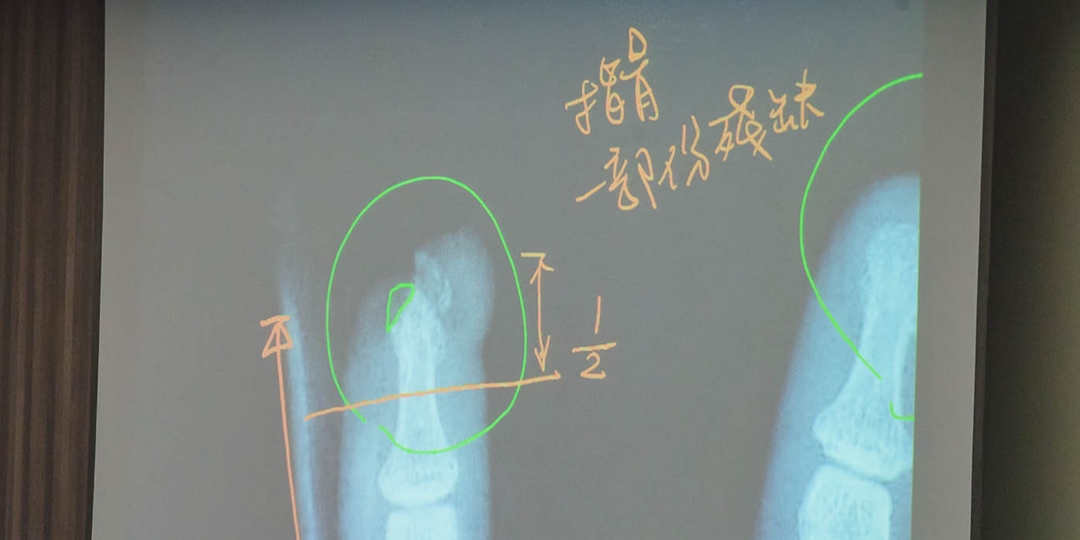 指骨
一部份残缺
1/2